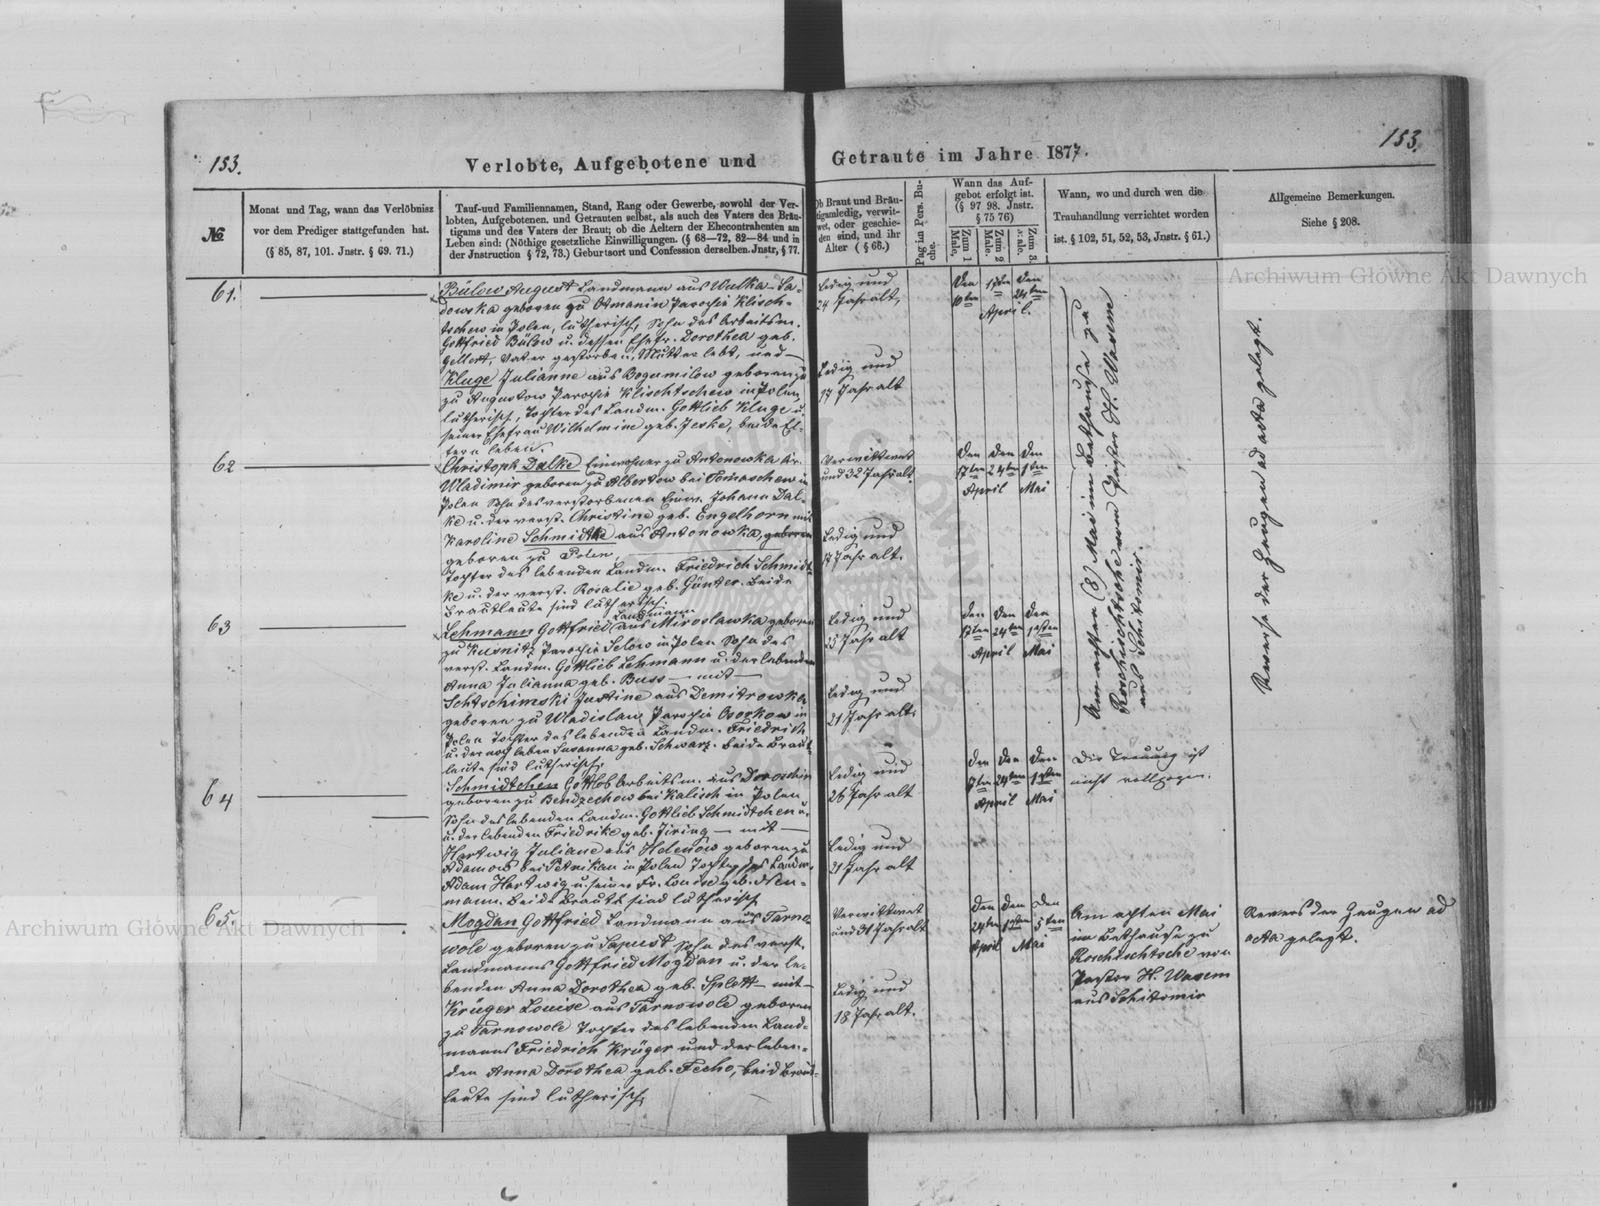 153.
Verlobte, Aufgebotene und Getraute im Jahre 1877.
153.
№
Monat und Tag, wann das Verlöbnisz
vor dem Prediger stattgefunden hat.
(§ 85, 87, 101. Jnstr. § 69. 71.)
Tauf-und Familiennamen, Stand, Rang oder Gewerbe, sowohl der Ver-
lobten, Aufgebotenen. und Getrauten selbst, als auch des Vaters des Bräu-
tigams und des Vaters der Braut; ob die Aeltern der Ehecontrahenten am
Leben sind: (Nöthige gesetzliche Einwilligungen. (§ 68—72, 82—84 und in
der Jnstruction § 72, 73.) Geburtsort und Confession derselben. Jnstr, § 77.
Ob Braut und Bräu-
tigam ledig, verwit-
wet, oder geschie-
den sind, und ihr
Alter (§ 66.)
Pag im Pers. Bu-
che.
Wann das Auf-
gebot erfolgt ist.
(§ 97 98. Jnstr.
§ 75 76)
Zum 1
Male.
Zum 2
Male.
Zum 3.
Male.
Wann, wo und durch wen die
Trauhandlung verrichtet worden
ist. § 102, 51, 52, 53, Jnstr. § 61.)
Allgemeine Bemerkungen.
Siehe § 208.
61.
Bülow August Landmann aus Wulka-Sa-
dowska geboren zu Osmanin Parochie Klisch-
tschew in Polen, lutherisch, Sohn des Arbeitsm.
Gottfried Bülow u. dessen Ehefr. Dorothea geb.
Gellert, Vater gestorben, Mutter lebt, und
Kluge Julianne aus Bogumilow geboren zu
zu Augustow Parochie Klischtschew in Polen
lutherisch, Tochter des Landm. Gottlieb Kluge u.
seiner Ehefrau Wilhelmine geb. Jeske, beide El-
tern leben.
ledig und
24 Jahr alt,
Ledig und
17 Jahr alt
den 17ten den
10ten 24ten
April.
Am achten (8) Mai im Bethause zu
Roschischtsche vom Pastor H. Wasem
aus Schitomir.
Reverse der Zeugen ad acta gelegt.
62
Christoph Dalke Einwohner zu Antonowka Kr.
Wladimir geboren zu Albertow bei Tomaschew in
Polen Sohn des verstorbenen Einw. Johann Dal-
ke u. der verst. Christine geb. Engelhorn mit
Karoline Schmidtke aus Antonowka, geboren
geboren zu Polen,
Tochter des lebenden Landm. Friedrich Schmidt-
ke u. der verst. Rosalie geb. Günter. Beide
Brautleute sind lutherisch.
Verwittwet
und 32 Jahr alt
Ledig und
17 Jahr alt.
den den den
17ten 24ten 1ten
April Mai
63
Landmann
Lehmann Gottfried aus Miroslawka geboren
zu Kusnitz Parochie Selow in Polen Sohn des
verst. Landm. Gottlieb Lehmann u. der lebenden
Anna Julianna geb. Buss — mit —
Schtschimski Justine aus Demitrowka
geboren zu Wladislaw Parochie Osorkow in
Polen Tochter des lebenden Landm. Friedrich
u. der noch leben Susanna geb. Schwarz. beide Braut-
leute sind lutherisch.
Ledig und
23 Jahr alt
Ledig und
21 Jahr alt.
den den den
17ten 24ten 1sten
April Mai
64
Schmidtchen Gottlob Arbeitsm. aus Doroschin
geboren zu Bendzechow bei Kalisch in Polen
Sohn des lebenden Landm. Gottlieb Schmidtchen u.
u. der lebenden Friedrike geb. Jiring — mit —
Hartwig Juliane aus Helenow geboren zu
Adamow bei Petrikau in Polen Tochter des Landm.
Adam Hartwig u. seiner Fr. Louise geb. Neu-
mann. Beide Brautl. sind lutherisch
Ledig und
26 Jahr alt
Ledig und
21 Jahr alt
den den den
17ten 24ten 1sten
April Mai
Die Trauung ist
nicht vollzogen.
65.
Mogdan Gottfried Landmann aus Tarno-
wole geboren zu Sapust Sohn des verst.
Landmanns Gottfried Mogdan u. der le-
benden Anna Dorothea geb. Splett — mit —
Krüger Louise aus Tarnowole geboren
zu Tarnowole Tochter des lebenden Land-
manns Friedrich Krüger und der leben-
den Anna Dorothea geb. Fecho, beid Braut-
leute sind lutherisch,
Verwittwet
und 31 Jahr alt
Ledig und
18 Jahr alt.
den den den
24ten 1sten 5ten
April Mai
Am achten Mai
im Bethause zu
Roschischtsche von
Pastor H. Wasem
aus Schitomir
Revers der Zeugen ad
acta gelegt.
Archiwum Główne Akt Dawnych
Archiwum Główne Akt Dawnych